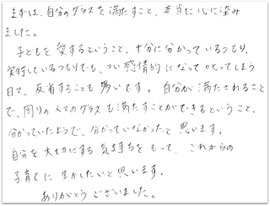 まずは、自分のグラスを満たすこと、本当に心に染み
ました。
子どもを愛するということ、十分に分かっているつもり、
実行しているつもりでも、つい感情的になって叱ってしまう
日々で、反省することも多いです。自分が満たされること
で、周りの人のグラスも満たすことができるということ、
分かっていたようで、分かっていなかったと思います。
自分を大切にする気持ちをもって、これからの
子育てに生かしたいと思います。
ありがとうございました。